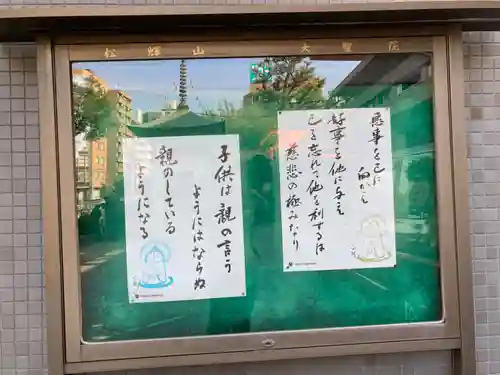 松輝山 大聖院
悪事を己に向かえ
好事を他に与え
己を忘れて他を利するは
慈悲の極みなり
子供は親の言う
ようにはならぬ
親のしている
ようになる